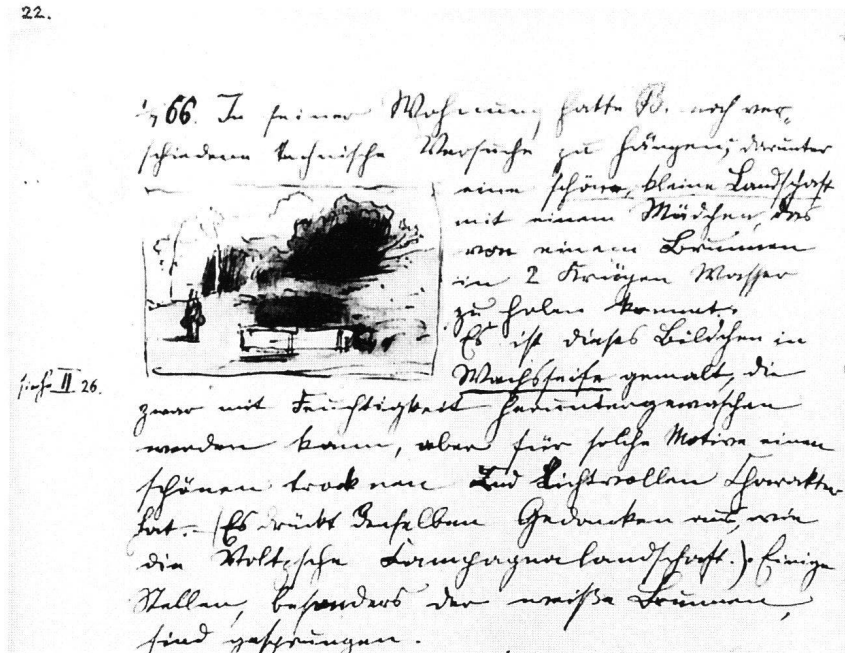 22.
1/7 66. In seiner Wohnung hatte B. noch ver-
schiedene technische Versuche zu hängen; darunter
eine schöne, kleine Landschaft
mit einem Mädchen, das
von einem Brunnen
in 2 Krügen Wasser
zu holen kommt.
Es ist dieses Bildchen in
Wachsseife gemalt, die
siehe II 26.
zwar mit Feuchtigkeit heruntergewaschen
werden kann, aber für solche Motive einen
schönen trocknen und lichtvollen Charakter
hat. (Es drückt denselben Gedanken aus, wie
die Campagnalandschaft.). Einige
Stellen, besonders der weiße Brunnen,
sind gesprungen.